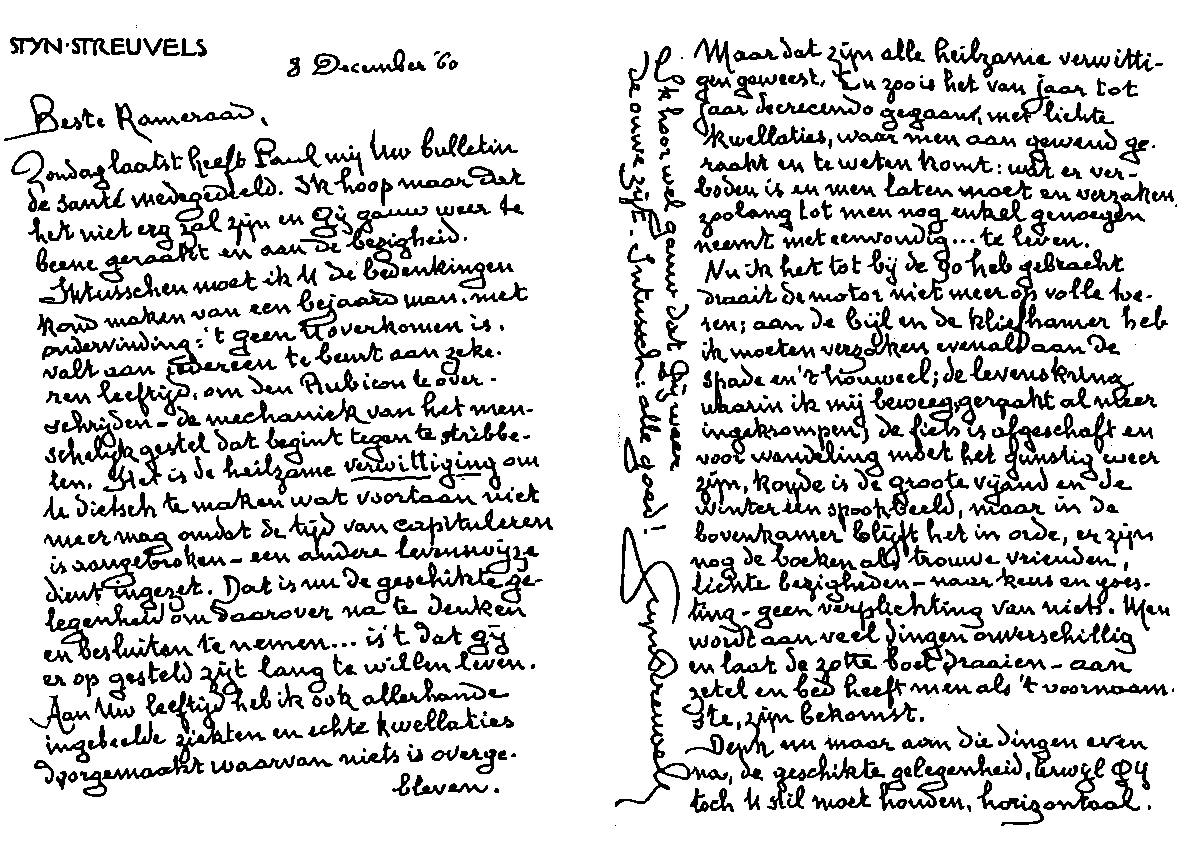 STYN·STREUVELS
8 December '60
Beste Kameraad,
Zondag laatst heeft Paul mij Uw bulletin
de santé medegedeeld. Ik hoop maar dat
het niet erg zal zijn en Gij gauw weer te
beene geraakt en aan de bezigheid.
Intusschen moet ik U de bedenkingen
kond maken van een bejaard man, met
ondervinding: 't geen U overkomen is,
valt aan iedereen te beurt aan zeke-
ren leeftijd, om den Rubicon te over-
schrijden – de mechaniek van het men-
schelijk gestel dat begint tegen te stribbe-
len. Het is de heilzame verwittiging om
U dietsch te maken wat voortaan niet
meer mag omdat de tijd van capituleren
is aangebroken – een andere levenswijze
dient ingezet. Dat is nu de geschikte ge-
legenheid om daarover na te denken
en besluiten te nemen... is 't dat gij
er op gesteld zijt lang te willen leven.
Aan Uw leeftijd heb ik ook allerhande
ingebeelde ziekten en echte kwellaties
doorgemaakt waarvan niets is overge-
bleven.
Maar dat zijn alle heilzame verwitti-
gen geweest. En zoo is het van jaar tot
jaar decrecendo gegaan, met lichte
kwellaties, waar men aan gewend ge-
raakt en te weten komt: wat er ver-
boden is en men laten moet en verzaken,
zoolang tot men nog enkel genoegen
neemt met eenvoudig... te leven.
Nu ik het tot bij de 90 heb gebracht
draait de motor niet meer op volle toe-
ren; aan de bijl en de kliefhamer heb
ik moeten verzaken evenals aan de
spade en 't houweel; de levenskring
waarin ik mij beweeg, geraakt al meer
ingekrompen; de fiets is afgeschaft en
voor wandeling moet het gunstig weer
zijn, koude is de groote vijand en de
winter een spookbeeld, maar in de
bovenkamer blijft het in orde, er zijn
nog de boeken als trouwe vrienden,
lichte bezigheden – naar keus en goes-
ting – geen verplichting van niets. Men
wordt aan veel dingen onverschillig
en laat de zotte boel draaien – aan
zetel en bed heeft men als 't voornaam-
ste, zijn bekomst.
Denk nu maar aan die dingen even
na, de geschikte gelegenheid, terwijl Gij
toch U stil moet houden, horizontaal.
Ik hoor wel gauw dat Gij weer
de ouwe zijt. Intusschen: alle goed!
Stijn Streuvels